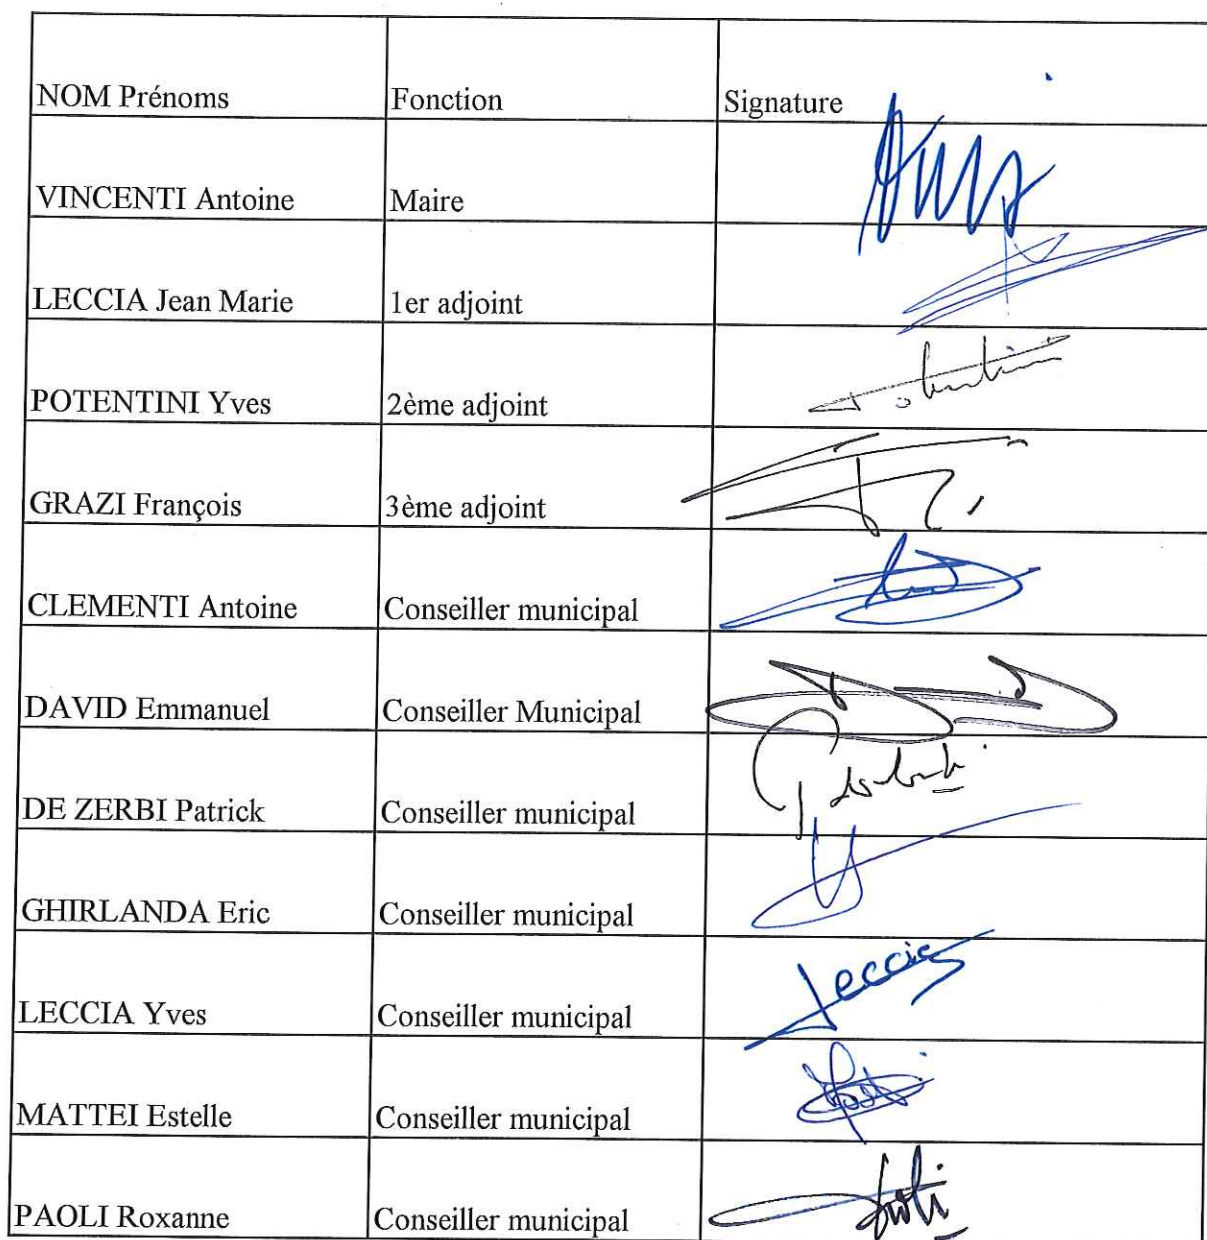 NOM Prénoms Fonction Signature
VINCENTI Antoine Maire
LECCIA Jean Marie 1er adjoint
POTENTINI Yves 2ème adjoint
GRAZI François 3ème adjoint
CLEMENTI Antoine Conseiller municipal
DAVID Emmanuel Conseiller Municipal
DE ZERBI Patrick Conseiller municipal
GHIRLANDA Eric Conseiller municipal
LECCIA Yves Conseiller municipal Leccia
MATTEI Estelle Conseiller municipal
PAOLI Roxanne Conseiller municipal